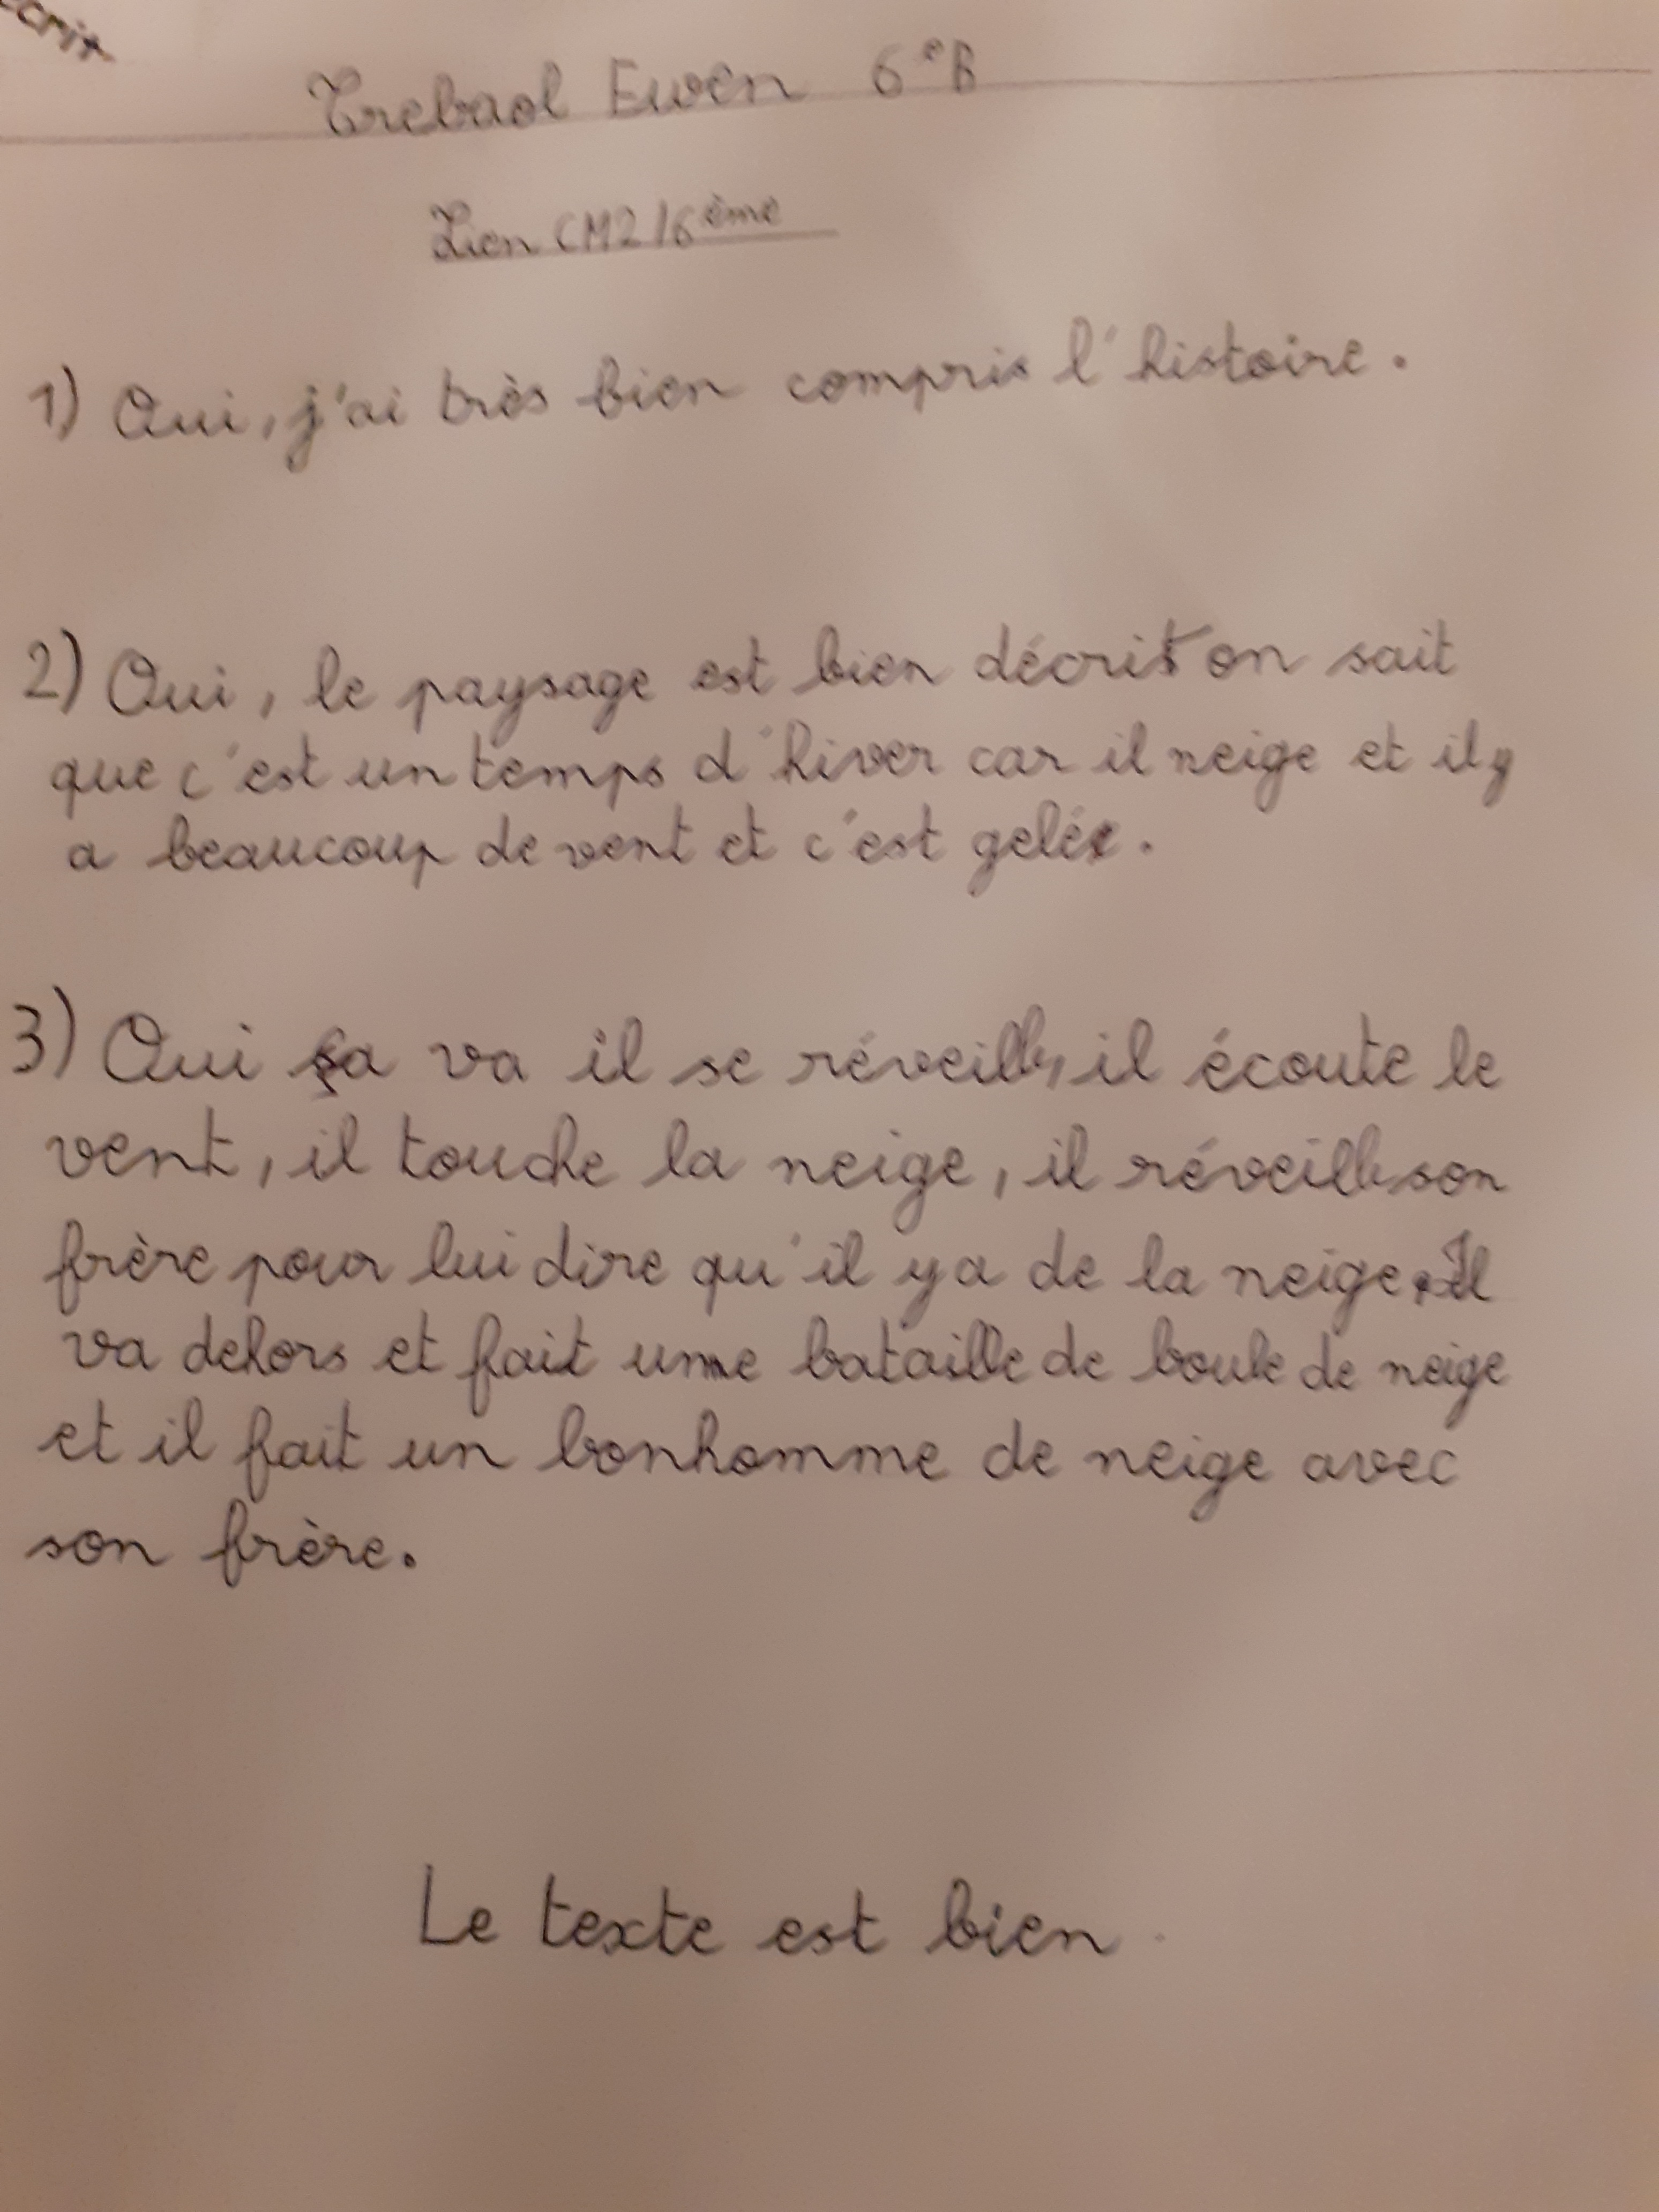 Trebaol Ewen 6eB
Lien CM2/6ème
1) Oui, j'ai très bien compris l'histoire.
2) Oui, le paysage est bien décrit on sait
que c'est un temps d'hiver car il neige et il y
a beaucoup de vent et c'est gelée.
3) Oui ça va il se réveille, il écoute le
vent, il touche la neige, il réveille son
frère pour lui dire qu'il y a de la neige. Il
va dehors et fait une bataille de boule de neige
et il fait un bonhomme de neige avec
son frère.
Le texte est bien.